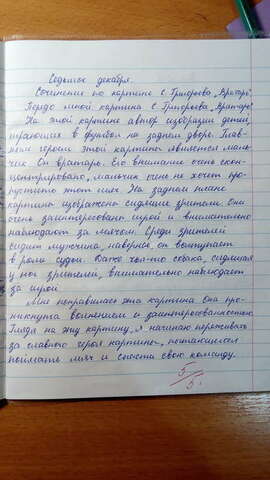 Седьмое декабря.
Сочинение по картине С. Григорьева „Вратарь".
Передо мной картина С. Григорьева „Вратарь".
На этой картине автор изобразил детей,
играющих в футбол на заднем дворе. Глав-
ным героем этой картины является маль-
чик. Он вратарь. Его внимание очень скон-
центрировано, мальчик очень не хочет про-
пустить этот мяч. На заднем плане
картины изображены сидящие зрители. Они
очень заинтересованы игрой и внимательно
наблюдают за мячом. Среди зрителей
сидит мужчина, наверное, он выступает
в роли судьи. Даже чья-то собака, сидящая
у ног зрителей, внимательно наблюдает
за игрой.
Мне понравилась эта картина. Она про-
никнута волнением и заинтересованностью.
Глядя на эту картину, я начинаю переживать
за главного героя картины, пытающегося
поймать мяч и спасти свою команду.
5/5.